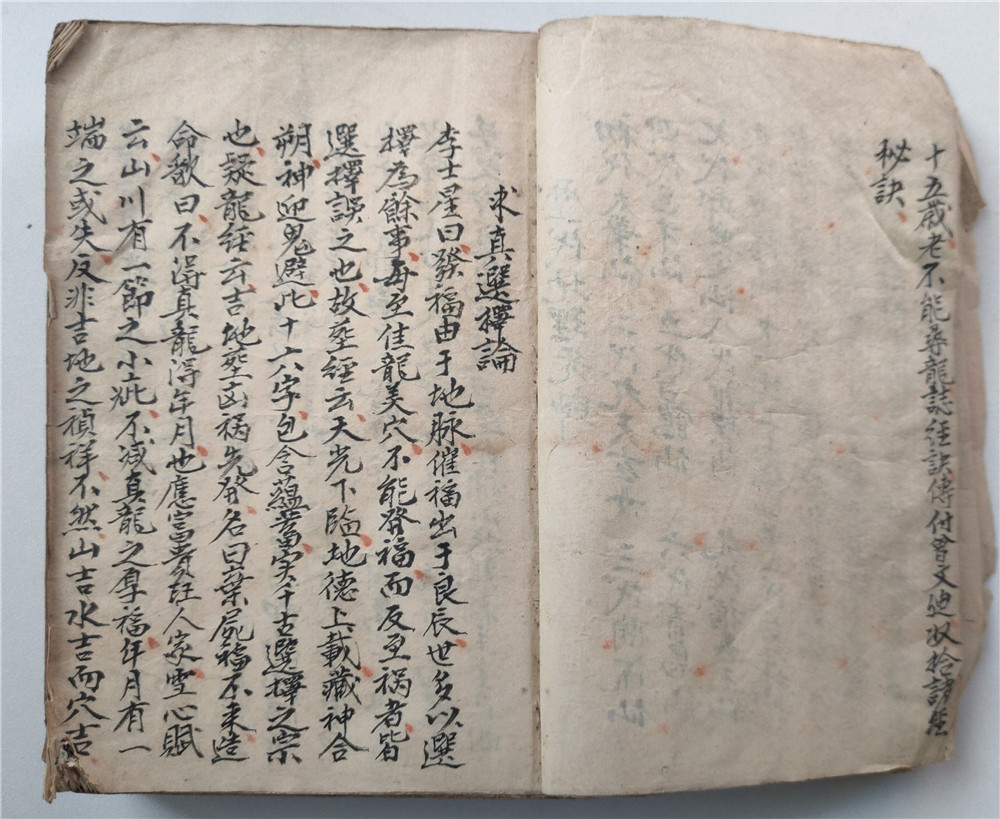 十五歲老不能尋龍誌經訣傳付曾文辿收拾諸經
秘訣
求真選擇論
李士星曰發福由于地脉催福出于良辰世多以選
擇為餘事每至佳龍美穴不能發福而反至禍者皆
選擇誤之也故塟經云天光下臨地德上載藏神合
朔神迎鬼避此十六字包含蘊蓄实千古選擇之宗
也疑龍經云吉地塟凶祸先發名曰棄屍福不来造
命歌曰不淂真龍淂年月也應富貴旺人家雪心賦
云山川有一節之小疵不减真龍之厚福年月有一
端之或失反非吉地之禎祥不然山吉水吉而穴吉